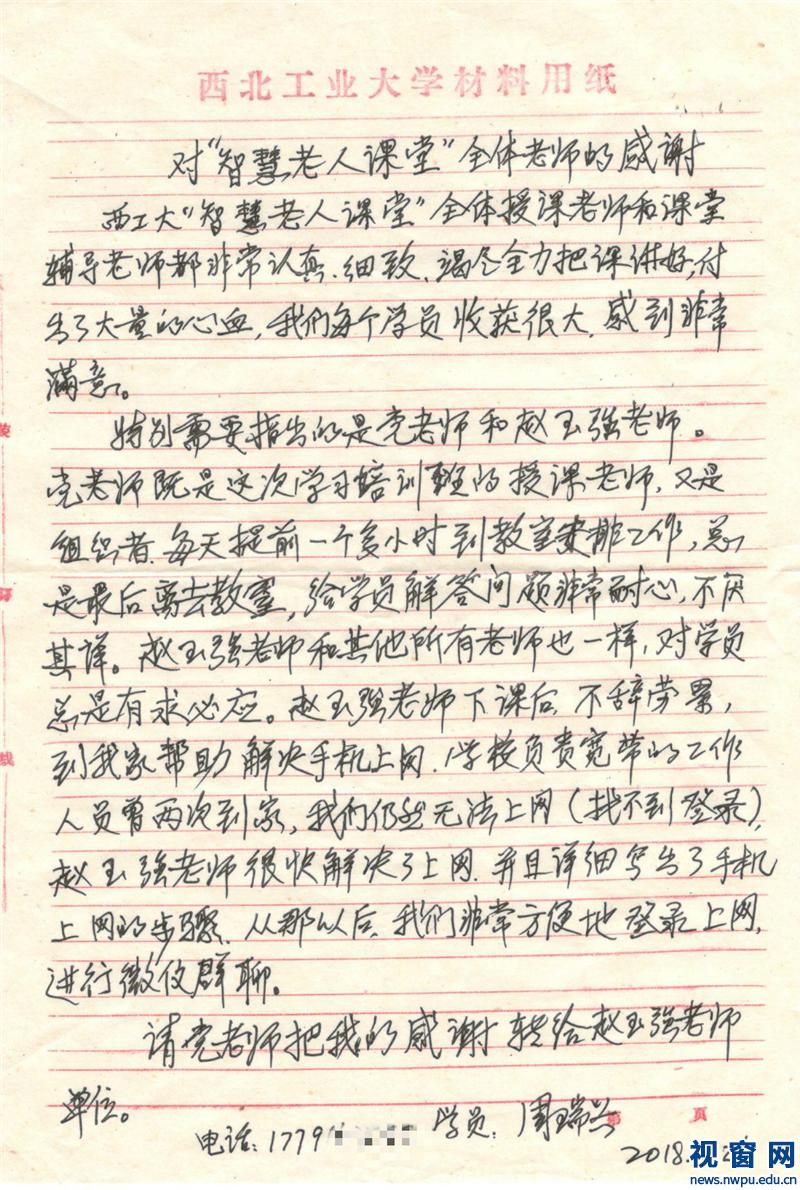 西北工业大学材料用纸
对“智慧老人课堂”全体老师的感谢
西工大“智慧老人课堂”全体授课老师和课堂
辅导老师都非常认真、细致、竭尽全力把课讲好，付
出了大量的心血，我们每个学员收获很大，感到非常
满意。
特别需要指出的是党老师和赵玉强老师。
党老师既是这次学习培训班的授课老师，又是
组织者，每天提前一个多小时到教室安排工作，总
是最后离去教室，给学员解答问题非常耐心，不厌
其详。赵玉强老师和其他所有老师也一样，对学员
总是有求必应。赵玉强老师下课后，不辞劳累，
到我家帮助解决手机上网，学校负责宽带的工作
人员曾两次到家，我们仍然无法上网（找不到登录），
赵玉强老师很快解决了上网，并且详细写出了手机
上网的步骤，从那以后，我们非常方便地登录上网，
进行微信群聊。
请党老师把我的感谢转给赵玉强老师
单位。
第 页
电话：1779 学员：周瑞兴
2018.
装
订
线
视窗网
news.nwpu.edu.cn